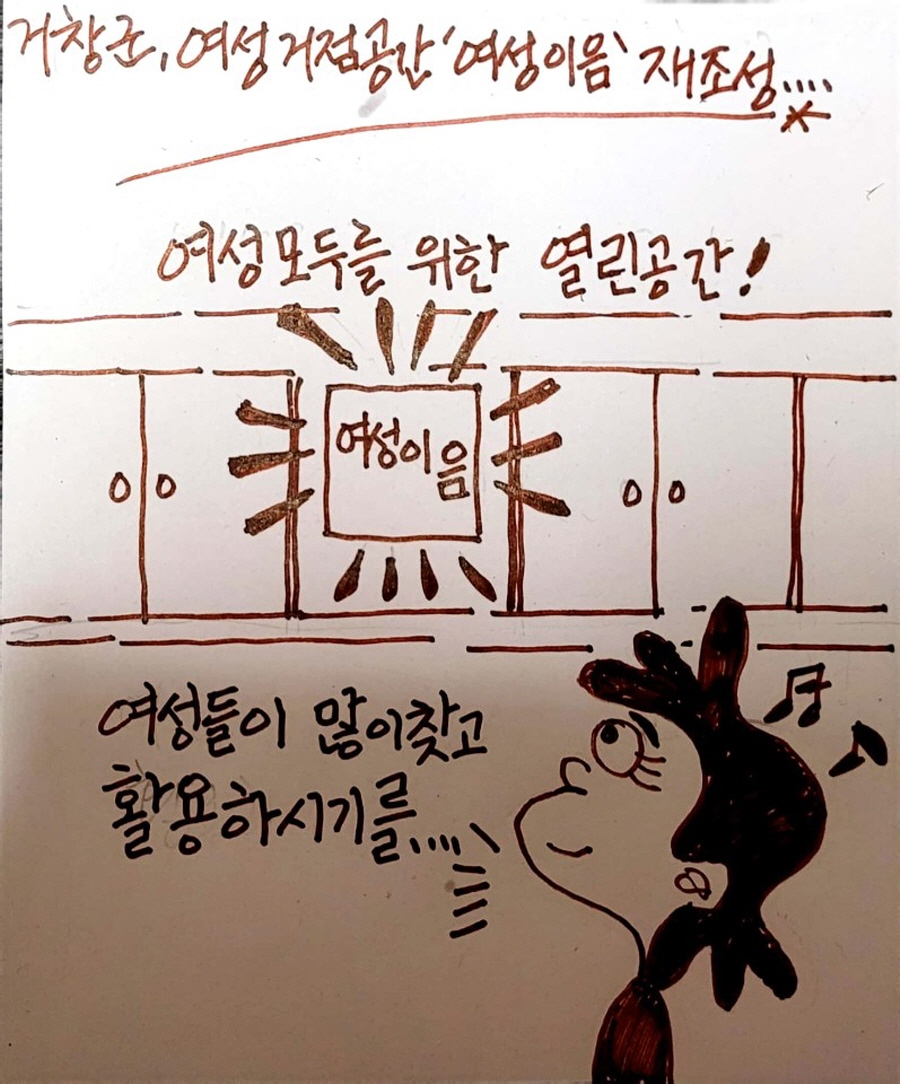 거창군, 여성거점공간 '여성이음' 재조성....
여성모두를 위한 열린공간!
여성이음
여성들이 많이찾고
활용하시기를....